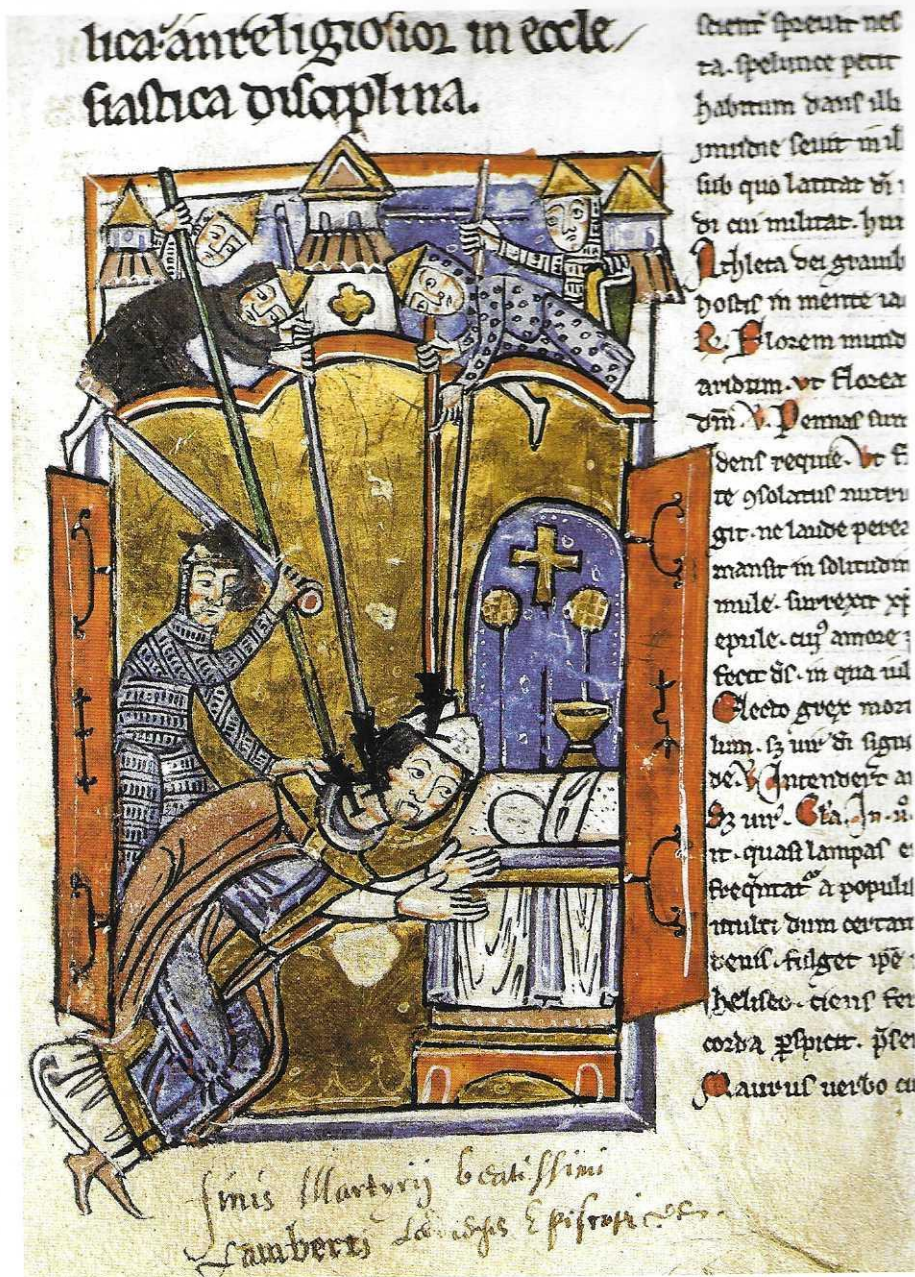 lica. an religiosior in eccle
siastica disciplina.
scient spreuit nec
ta. spelunce petit
habitum dans illi
sub quo latitat di
di cui militat. hui
Athleta dei grauib
hostis in mente
R. Florem mund
aridum. vt florea
dm̄. V. Pennas sum
dens requie. Vt fi
te ꝯsolatus nutri
git. ne laude perez
mansit in solitudin
mule. surrexit xp̄
epule. cuꝰ amore
fecit ds̄. in qua uil
Electo grex mori
tum. sz uir di signi
de. V. Intendert a
Sz uir. Gła. In. n̊.
it. quasi lampas e
freq̄ntat a populi
multi dum certan
uenis. fulget ipe
heliseo. ciens fer
corda ꝑspicit. p̄sen
Maurus uerbo cu
finis Martyrij beatissimi
Lamberti Episcopi